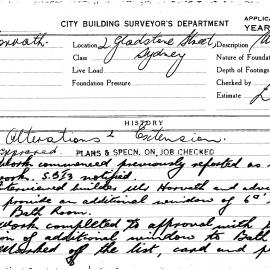 CITY BUILDING SURVEYOR'S DEPARTMENT
APPLIC
YEAR
Horvath. Location 2 Gladstone Street, Description
Sydney
Class
Nature of Foundat
Live Load
Depth of Footings
Foundation Pressure
Checked by
Estimate £
HISTORY
Alterations & Extension.
PLANS & SPECN. ON JOB CHECKED
work commenced previously reported as
work. S.O/3 notified.
Interviewed builder Mr Horvath and
provide an additional window of 6
Bath Room.
work completed to approval with
of additional window to Bath
Marked off the list, card and